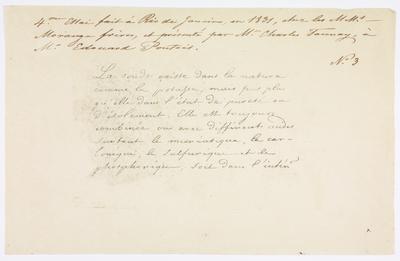 4.me Essai fait à Rio de Janeiro, en 1831, chez les M.Mrs
Moranga frères, et présenté par Mr Charles Taunay, à
Mr Edouard Pontois.
No 3
La soude existe dans la nature
comme la potasse, mais pas plus
qu'elle dans l'état de pureté ou
d'isolement. Elle est toujours
combinée ou avec différents acides
surtout le muriatique, le car-
bonique, le sulfurique et le
phosphorique, soit dans l'intér